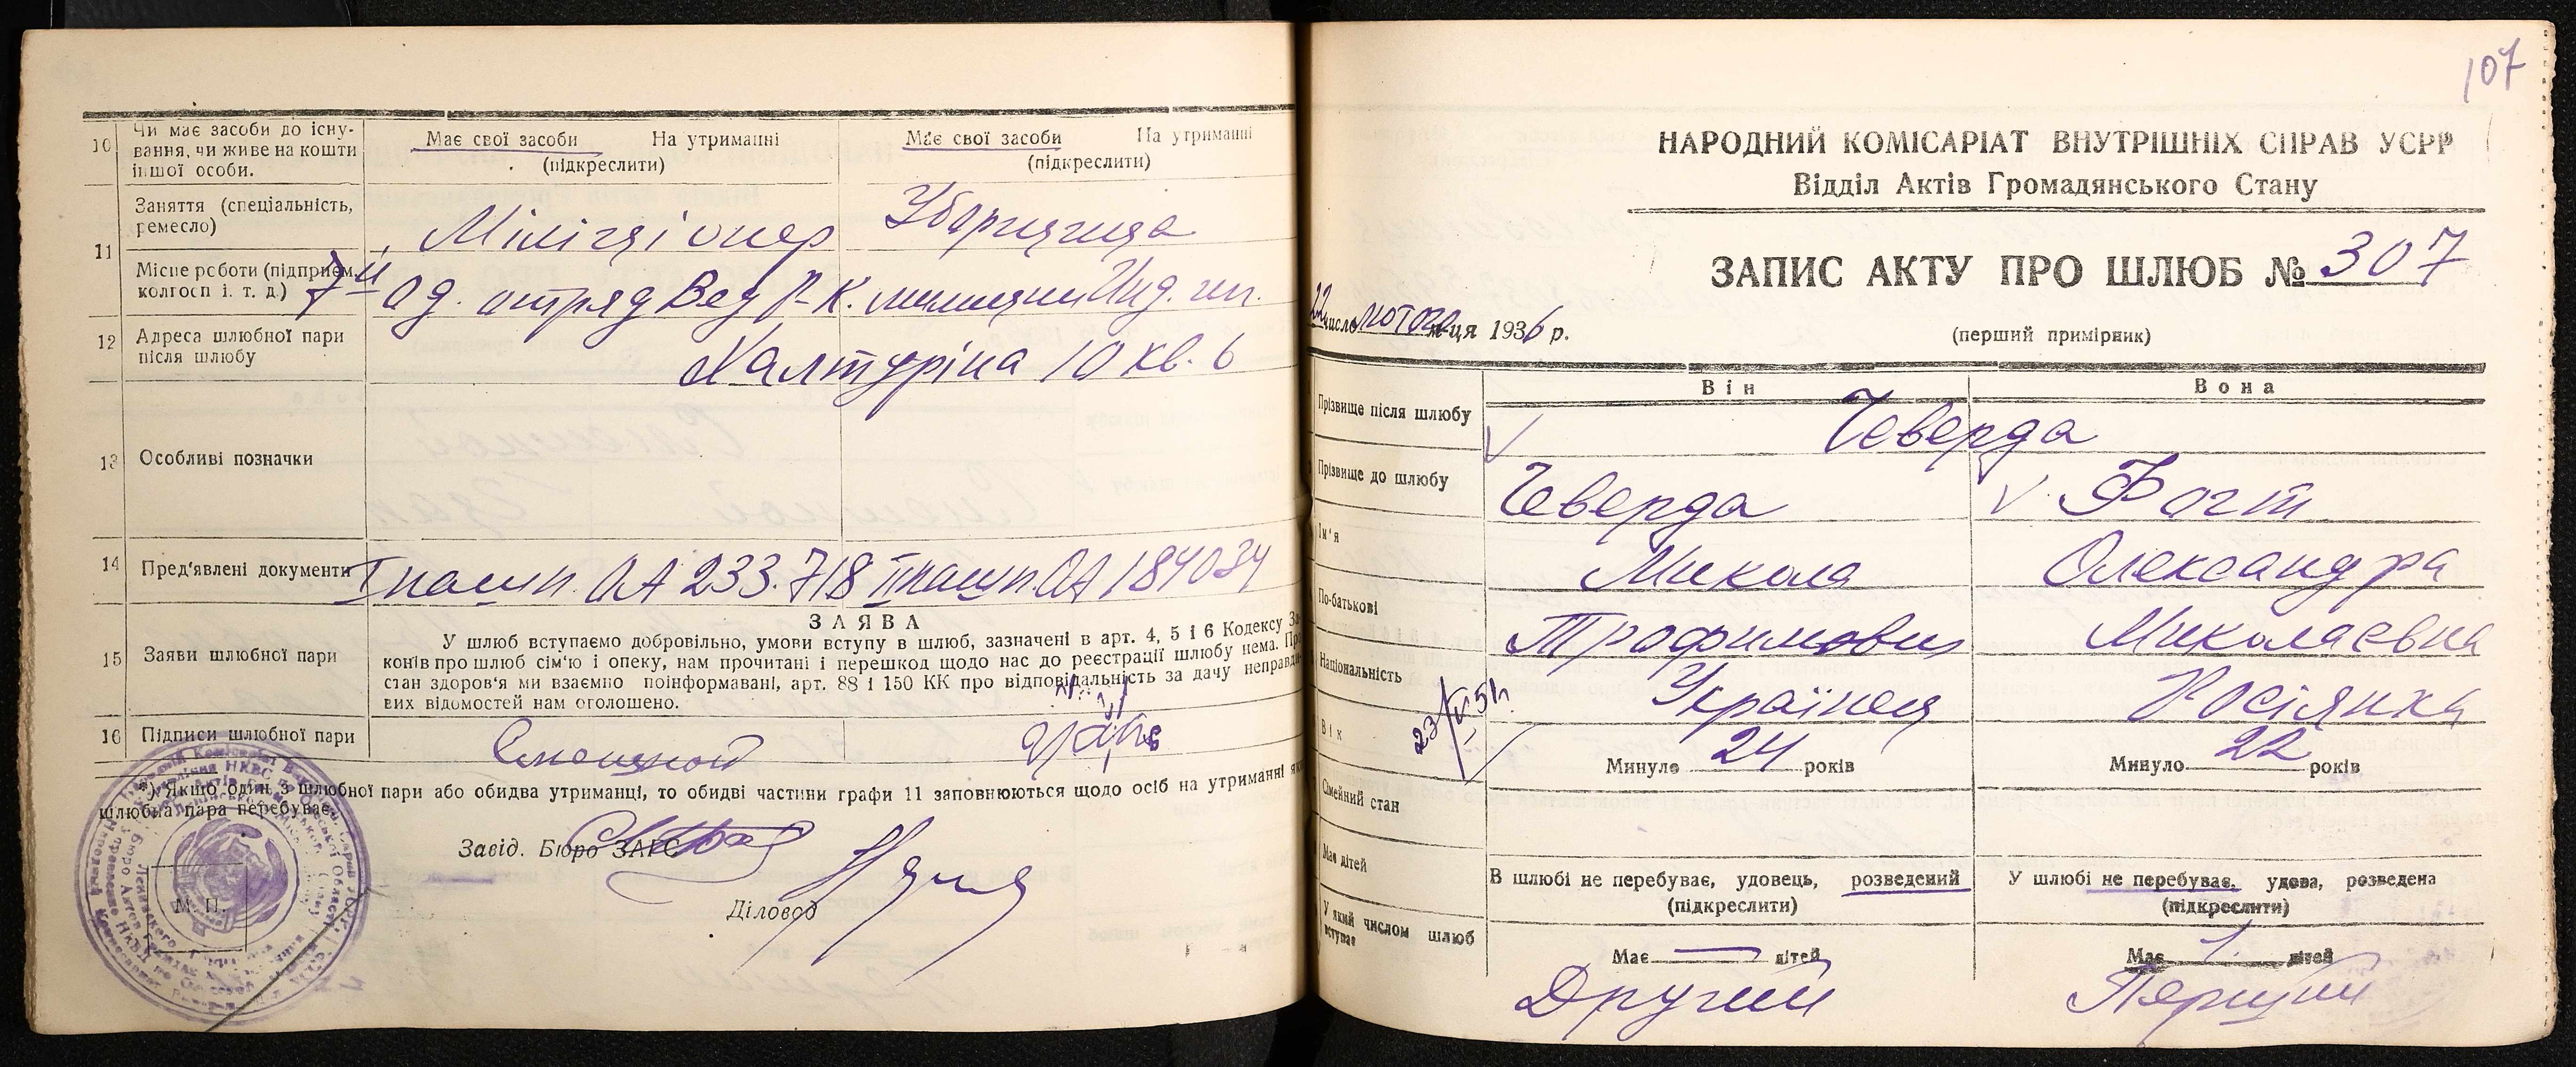 10 Чи має засоби до існу-
вання, чи живе на кошти
іншої особи.
Має свої засоби На утриманні
(підкреслити)
Має свої засоби На утриманні
(підкреслити)
11 Заняття (спеціальність,
ремесло)
Міліціонер
Уборщиця
Місце роботи (підприєм.
колгосп і. т. д.)
7й од. отряд Вед Р-К. милиции Инд.
12 Адреса шлюбної пари
після шлюбу
Халтуріна 10 кв. 6
13 Особливі позначки
14 Пред'явлені документи
І пашп. ОА 233.718 ІІ пашп. ОА 184034
ЗАЯВА
15 Заяви шлюбної пари
У шлюб вступаємо добровільно, умови вступу в шлюб, зазначені в арт. 4, 5 і 6 Кодексу За-
конів про шлюб сім'ю і опеку, нам прочитані і перешкод щодо нас до реєстрації шлюбу нема. Про
стан здоров'я ми взаємно поінформавані, арт. 88 і 150 КК про відповідальність за дачу неправди-
вих відомостей нам оголошено.
16 Підписи шлюбної пари
*) Якщо один з шлюбної пари або обидва утриманці, то обидві частини графи 11 заповнюються щодо осіб на утриманні
шлюбна пара перебуває.
Завід. Бюро ЗАГС
Діловод
М. П.
107
НАРОДНИЙ КОМІСАРІАТ ВНУТРІШНІХ СПРАВ УСРР
Відділ Актів Громадянського Стану
ЗАПИС АКТУ ПРО ШЛЮБ № 307
22 числа лютого м-ця 1936 р.
(перший примірник)
Він Вона
Прізвище після шлюбу
Чеверда
Прізвище до шлюбу
Чеверда
Фогт
Ім'я
Микола
Олександра
По-батькові
Трофимович
Миколаевна
Національність
Українец
Росіянка
Вік
Минуло 24 років
Минуло 22 років
Сімейний стан
Має дітей
В шлюбі не перебуває, удовець, розведений
(підкреслити)
У шлюбі не перебуває, удова, розведена
(підкреслити)
У який числом шлюб
вступає
Має — дітей
Має 1. дітей
Другий
Перший